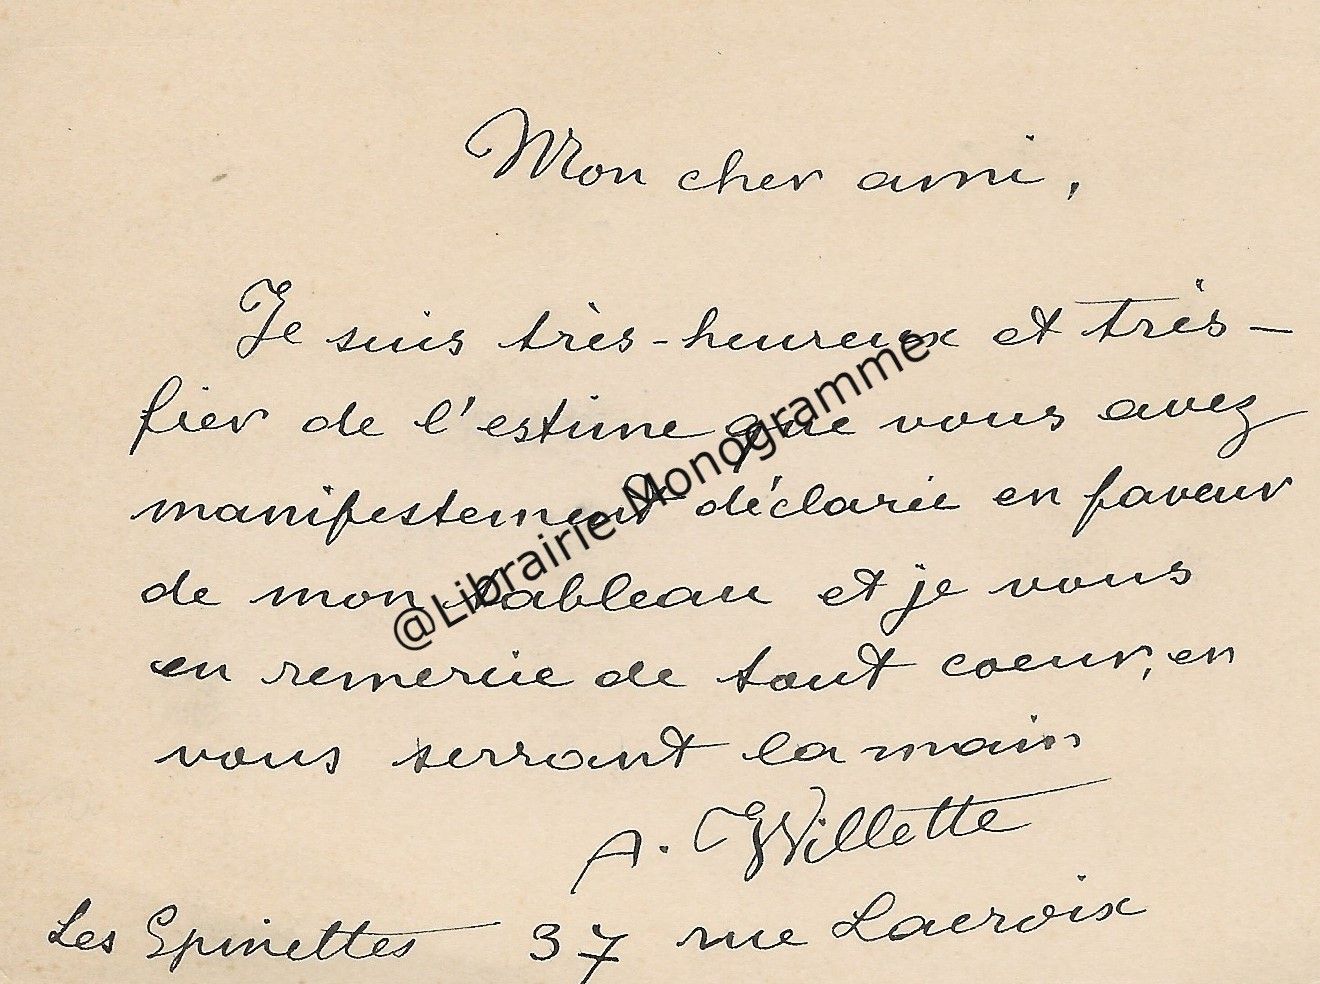 Mon cher ami,
Je suis très-heureux et très-
fier de l'estime que vous avez
manifestement déclarée en faveur
de mon tableau et je vous
en remercie de tout coeur, en
vous serrant la main
A. Willette
Les Epinettes 37 rue Lacroix
@Librairie Monogramme